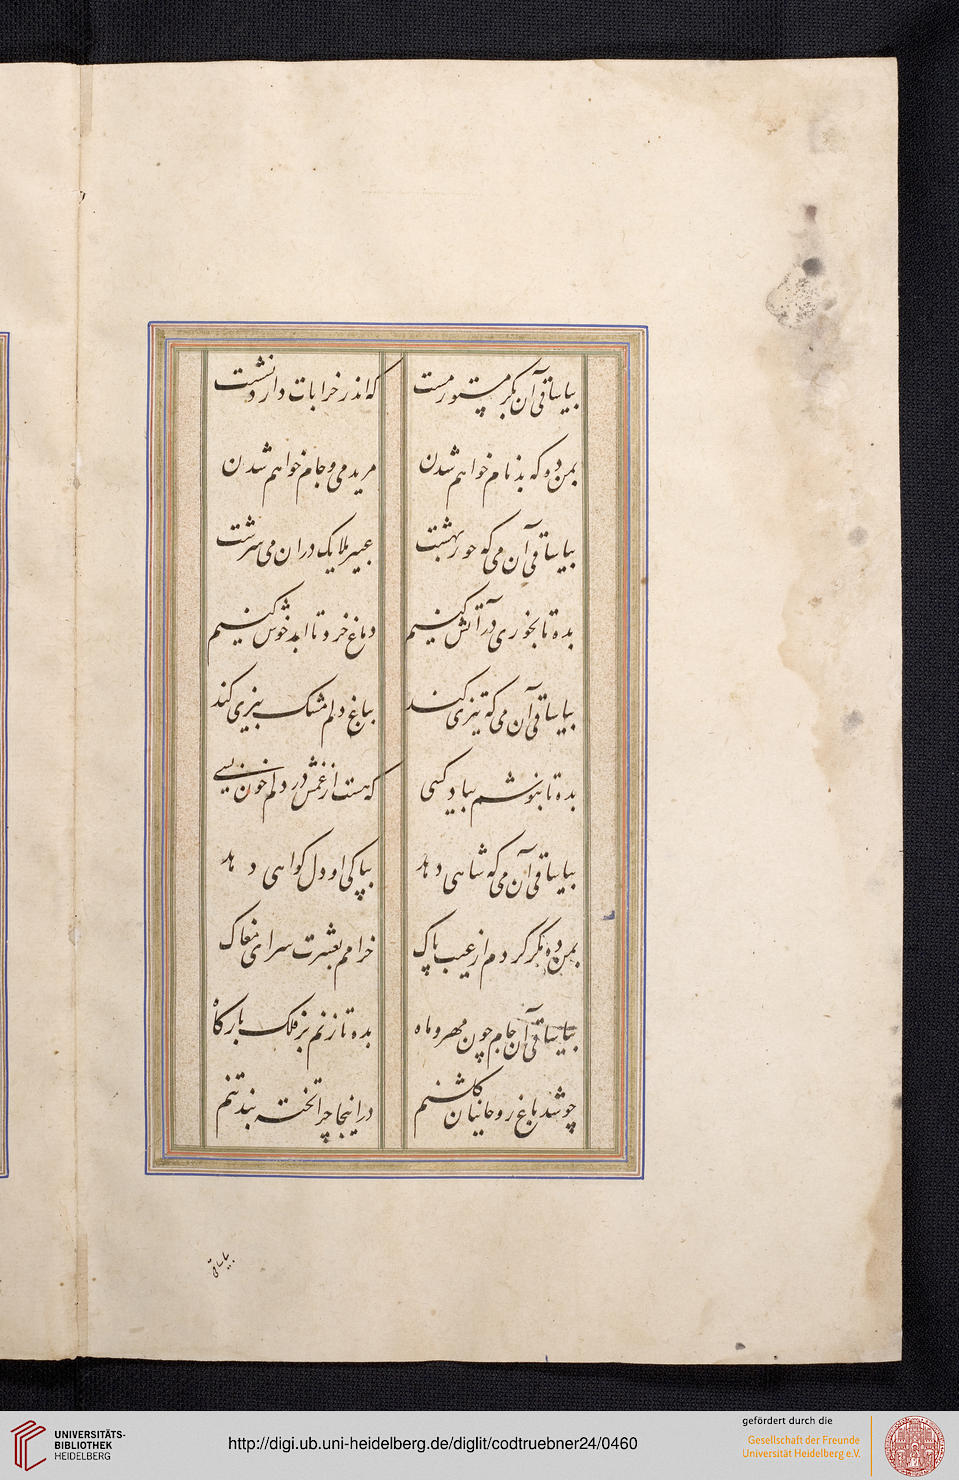 بیا ساقی آن بکر مستور مست که اندر خرابات دارد نشست
بمن ده که بدنام خواهم شدن مرید می و جام خواهم شدن
بیا ساقی آن می که حور بهشت عبیر ملایک دران می سرشت
بده تا بخوری در آتش کنیم دماغ خرد تا ابد خوش کنیم
بیا ساقی آن می که تیزی کند بباغ دلم مشک بیزی کند
بده تا بنوشم بیاد کسی که هست از غمش در دلم خون بسی
بیا ساقی آن می که شاهی دهد بپاکی او دل کواهی دهد
بمن ده مکر کردم از عیب پاک خرامم بعشرت سرای مغاک
بیا ساقی آن جام چون مهر و ماه بده تا زنم بر فلک بارکاه
چو شد باغ روحانیان کلشنم در اینجا چرا تخته بند تنم
بیا ساقی
UNIVERSITÄTS-
BIBLIOTHEK
HEIDELBERG
http://digi.ub.uni-heidelberg.de/diglit/codtruebner24/0460
gefördert durch die
Gesellschaft der Freunde
Universität Heidelberg e.V.